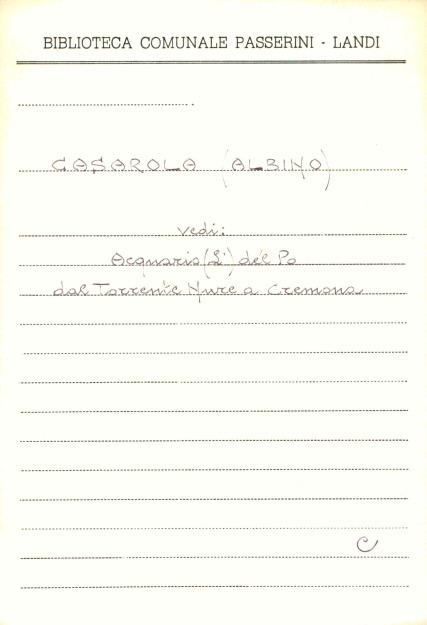 BIBLIOTECA COMUNALE PASSERINI - LANDI
CASAROLA (ALBINO)
vedi:
Acquario (L') del Po
dal Torrente Nure a Cremona
C